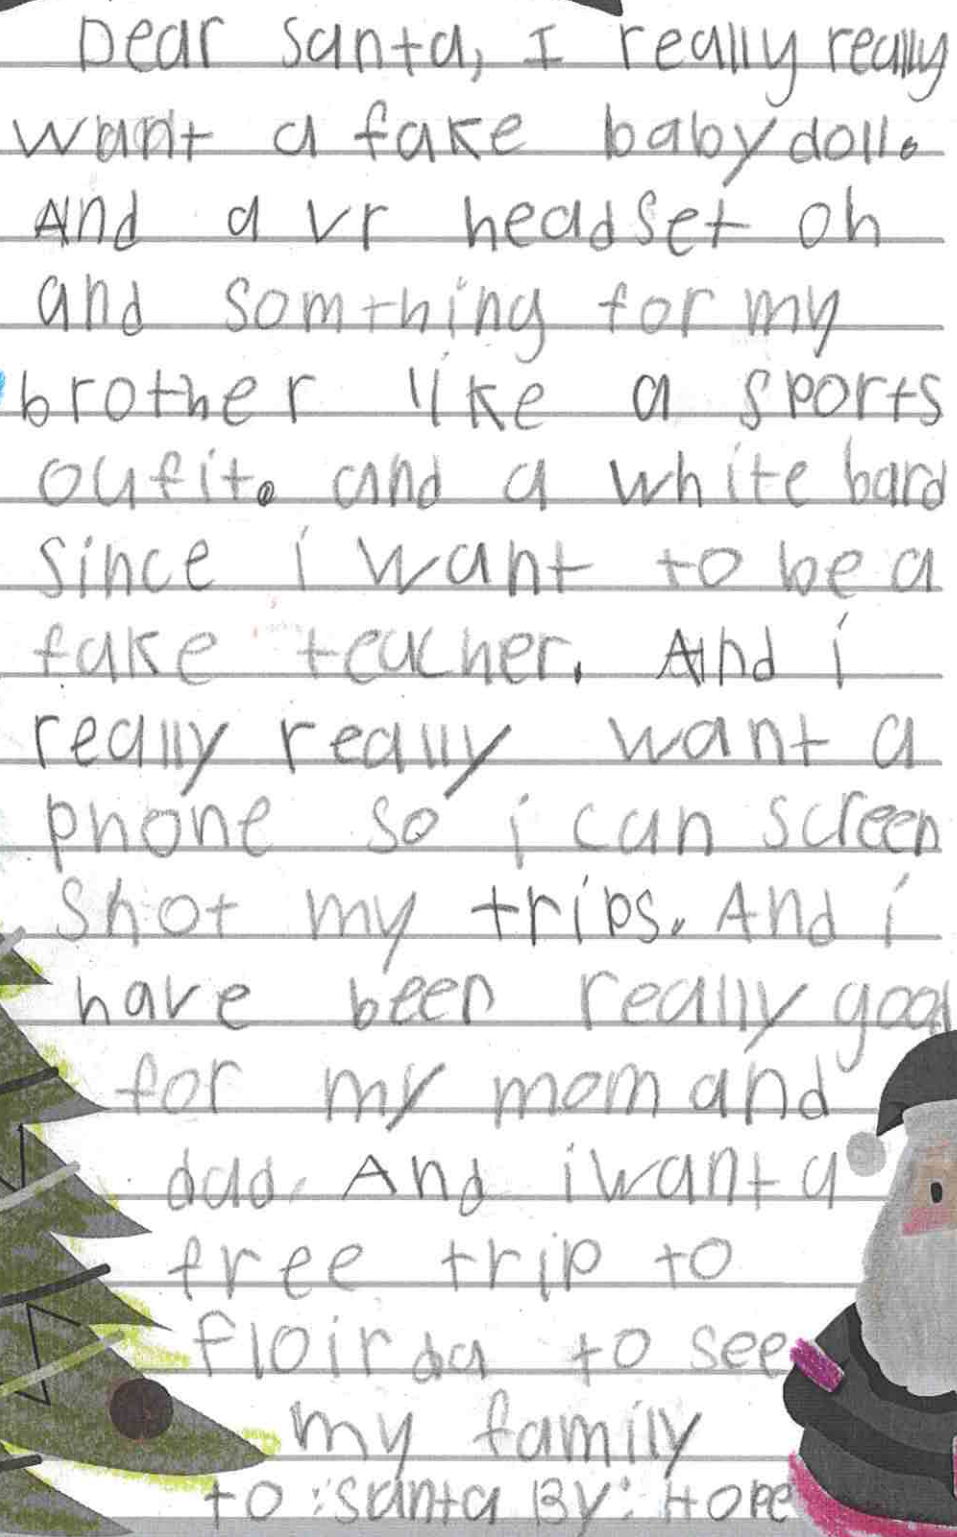 Dear Santa, I really really
want a fake baby doll.
And a vr headset oh
and somthing for my
brother like a sports
oufit. and a white bard
since i want to be a
fake teacher. And i
really really want a
phone so i can screen
shot my trips. And i
have been really good
for my mom and
dad. And i want a
free trip to
floirda to see
my family
to: santa By: Hope